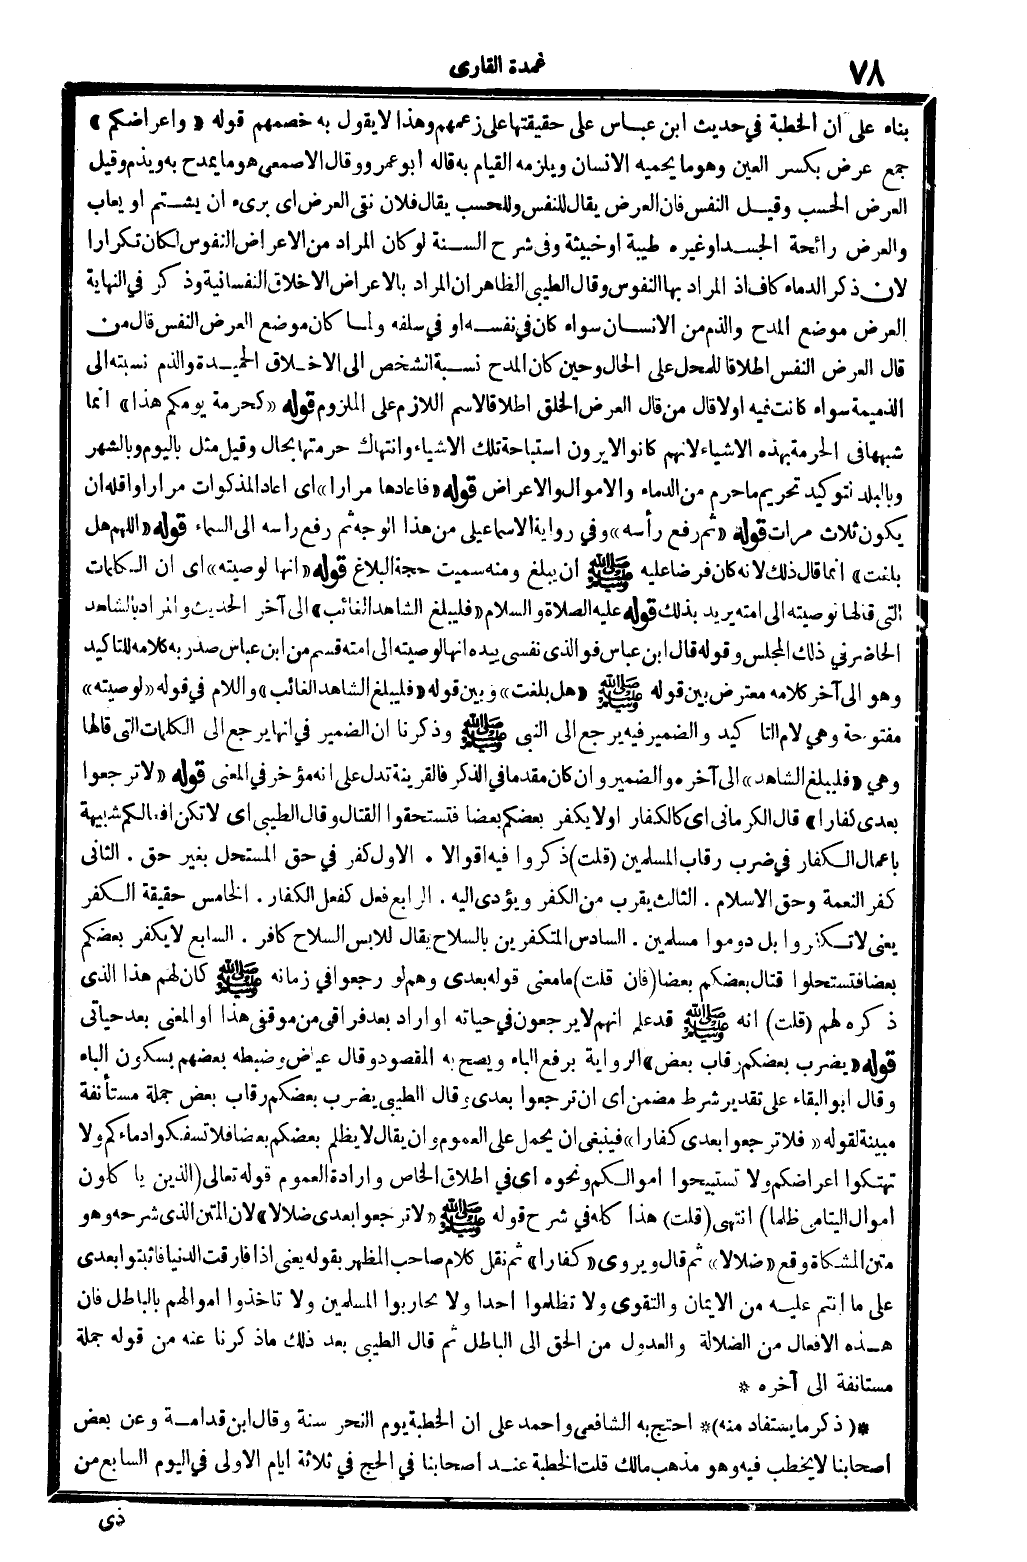 ٧٨
عمدة القارى
بناء على ان الخطبة في حديث ابن عباس على حقيقتها على زعمهم وهذا لا يقول به خصمهم قوله «واعراضكم»
جمع عرض بكسر العين وهو ما يحميه الانسان ويلزمه القيام به قاله أبو عمرو وقال الاصمعى هو ما يمدح به ويذم وقيل
العرض الحسب وقيل النفس فان العرض يقال للنفس وللحسب يقال فلان نقى العرض اى برىء ان يشتم او يعاب
والعرض رائحة الجسد او غيره طيبة او خبيثة وفى شرح السنة لو كان المراد من الاعراض النفوس لكان تكرارا
لان ذكر الدماء كاف اذ المراد بها النفوس وقال الطيبى الظاهر ان المراد بالاعراض الاخلاق النفسانية وذكر في النهاية
العرض موضع المدح والذم من الانسان سواء كان في نفسه او في سلفه ولما كان موضع العرض النفس قال من
قال العرض النفس اطلاقا للمحل على الحال وحين كان المدح نسبة الشخص الى الاخلاق الحميدة والذم نسبته الى
الذميمة سواء كانت فيه او لا قال من قال العرض الخلق اطلاقا لاسم اللازم على الملزوم قوله «كحرمة يومكم هذا» انما
شبهها فى الحرمة بهذه الاشياء لانهم كانوا لا يرون استباحة تلك الاشياء وانتهاك حرمتها بحال وقيل مثل باليوم وبالشهر
وبالبلد لتوكيد تحريم ما حرم من الدماء والاموال والاعراض قوله «فاعادها مرارا» اى اعاد المذكوات مرارا واقله ان
يكون ثلاث مرات قوله «ثم رفع رأسه» وفي رواية الاسماعيلى من هذا الوجه ثم رفع رأسه الى السماء قوله «اللهم هل
بلغت» انما قال ذلك لانه كان فرضا عليه ﷺ ان يبلغ ومنه سميت حجة البلاغ قوله «انها لوصيته» اى ان الكلمات
التى قالها لوصيته الى امته يريد بذلك قوله عليه الصلاة والسلام «فليبلغ الشاهد الغائب» الى آخر الحديث والمراد بالشاهد
الحاضر في ذلك المجلس وقوله قال ابن عباس فو الذى نفسى بيده انها لوصيته الى امته قسم من ابن عباس صدر به كلامه للتاكيد
وهو الى آخر كلامه معترض بين قوله ﷺ «هل بلغت» وبين قوله «فليبلغ الشاهد الغائب» واللام في قوله «لوصيته»
مفتوحة وهي لام التاكيد والضمير فيه يرجع الى النبى ﷺ وذكرنا ان الضمير في انها يرجع الى الكلمات التى قالها
وهي «فليبلغ الشاهد» الى آخره والضمير وان كان مقدما في الذكر فالقرينة تدل على انه مؤخر في المعنى قوله «لا ترجعوا
بعدى كفارا» قال الكرمانى اى كالكفار او لا يكفر بعضكم بعضا فتستحقوا القتال وقال الطيبى اى لا تكن افعالكم شبيهة
باعمال الكفار في ضرب رقاب المسلمين (قلت) ذكروا فيه اقوالا . الاول كفر في حق المستحل بغير حق . الثانى
كفر النعمة وحق الاسلام . الثالث يقرب من الكفر ويؤدى اليه . الرابع فعل كفعل الكفار . الخامس حقيقة الكفر
يعنى لا تكفروا بل دوموا مسلمين . السادس المتكفرين بالسلاح يقال للابس السلاح كافر . السابع لا يكفر بعضكم
بعضا فتستحلوا قتال بعضكم بعضا (فان قلت) ما معنى قوله بعدى وهم لو رجعوا في زمانه ﷺ كان لهم هذا الذى
ذكره لهم (قلت) انه ﷺ قد علم انهم لا يرجعون في حياته او اراد بعد فراقى من موقفى هذا او المعنى بعد حياتى
قوله «يضرب بعضكم رقاب بعض» الرواية برفع الباء ويصح به المقصود وقال عياض وضبطه بعضهم بسكون الباء
وقال ابو البقاء على تقدير شرط مضمن اى ان ترجعوا بعدى وقال الطيبى يضرب بعضكم رقاب بعض جملة مستأنفة
مبينة لقوله «فلا ترجعوا بعدى كفارا» فينبغى ان يحمل على العموم وان يقال لا يظلم بعضكم بعضا فلا تسفكوا دماءكم ولا
تهتكوا اعراضكم ولا تستبيحوا اموالكم ونحوه اى في اطلاق الخاص وارادة العموم قوله تعالى (الذين ياكلون
اموال اليتامى ظلما) انتهى (قلت) هذا كله في شرح قوله ﷺ «لا ترجعوا بعدى ضلالا» لان المتن الذى شرحه وهو
متن المشكاة وقع «ضلالا» ثم قال ويروى «كفارا» ثم نقل كلام صاحب المظهر بقوله يعنى اذا فارقت الدنيا فاثبتوا بعدى
على ما انتم عليه من الايمان والتقوى ولا تظلموا احدا ولا تحاربوا المسلمين ولا تاخذوا اموالهم بالباطل فان
هذه الافعال من الضلالة والعدول من الحق الى الباطل ثم قال الطيبى بعد ذلك ماذكرنا عنه من قوله جملة
مستانفة الى آخره *
*(ذكر ما يستفاد منه)* احتج به الشافعى واحمد على ان الخطبة يوم النحر سنة وقال ابن قدامة وعن بعض
أصحابنا لا يخطب فيه وهو مذهب مالك قلت الخطبة عند أصحابنا في الحج في ثلاثة ايام الاولى في اليوم السابع من
ذى